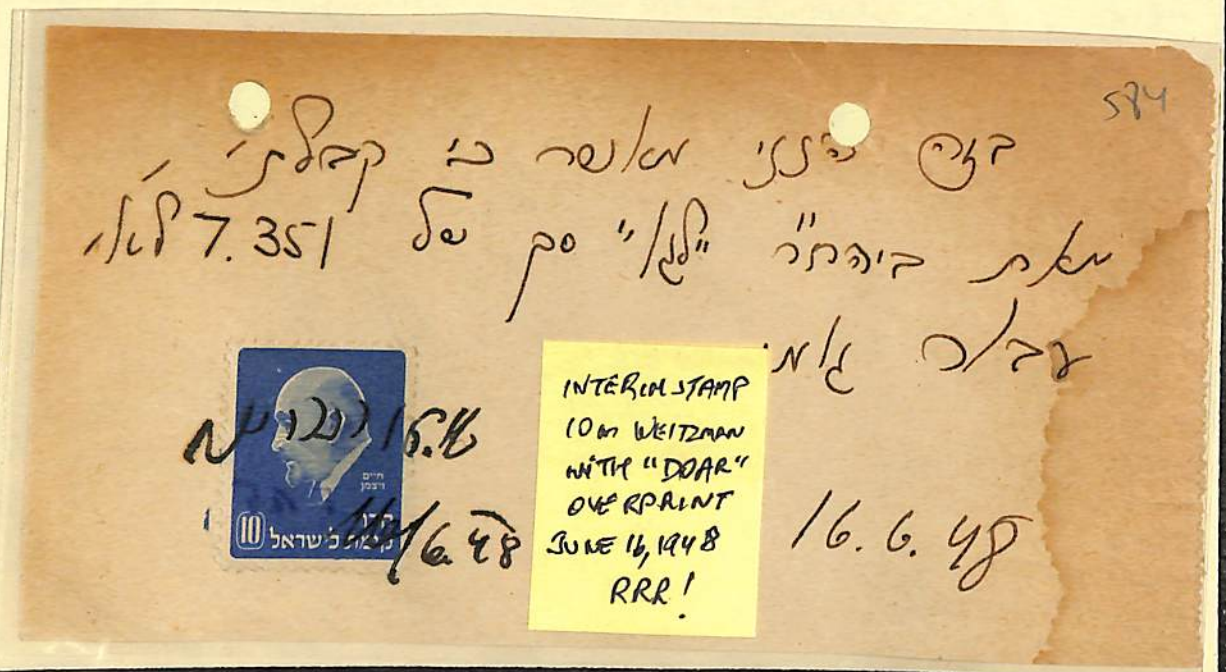 584
בזה הנני מאשר כי קבלתי
מאת ביהח"ר "לגו" סך של 7.351 לא"י
עבור גומי
חיים
ויצמן
קרן
קימת לישראל
10
16/6.48
INTERIM STAMP
10m WEITZMAN
WITH "DOAR"
OVERPRINT
JUNE 16, 1948
RRR!
16.6.48